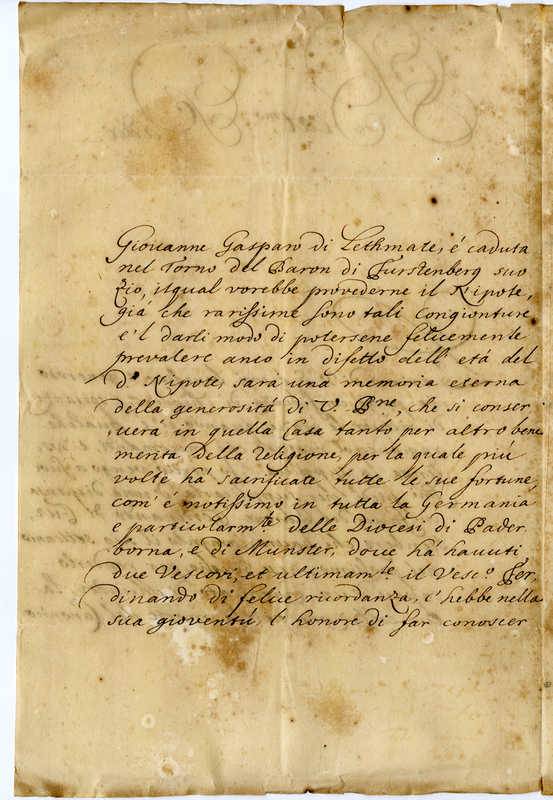 Giovanne Gasparo di Lethmate, é caduta
nel Torno del Baron di Furstenberg suo
Zio, ilqual vorebbe provederne il Nipote,
giá che rarissime sono tali congionture
e'l darli modo di potersene felicemente
prevalere anco in difetto dell' etá del
d.º Nipote, sará una memoria eterna
della generositá di V. Bne, che si conser
uerá in quella Casa tanto per altro bene
merita della religione, per la quale piú
volte há sacrificate tutte le sue fortune,
com' é notissimo in tutta la Germania
e particolarmte delle Diocesi di Pader
borna, e di Munster, doue há hauuti
due Vescovi, et ultimamte il Vesc.º Fer,
dinando di felice ricordanza, c'hebbe nella
sua gioventú l'honore di far conoscer